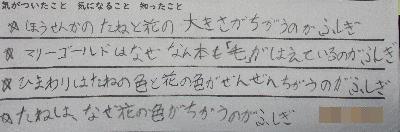 気がついたこと 気になること 知ったこと
☆ほうせんかのたねと花の大きさがちがうのがふしぎ
☆マリーゴールドはなぜなん本も「毛」がはえているのがふしぎ
☆ひまわりはたねの色と花の色がぜんぜんちがうのがふしぎ
☆たねは、なぜ花の色がちがうのがふしぎ